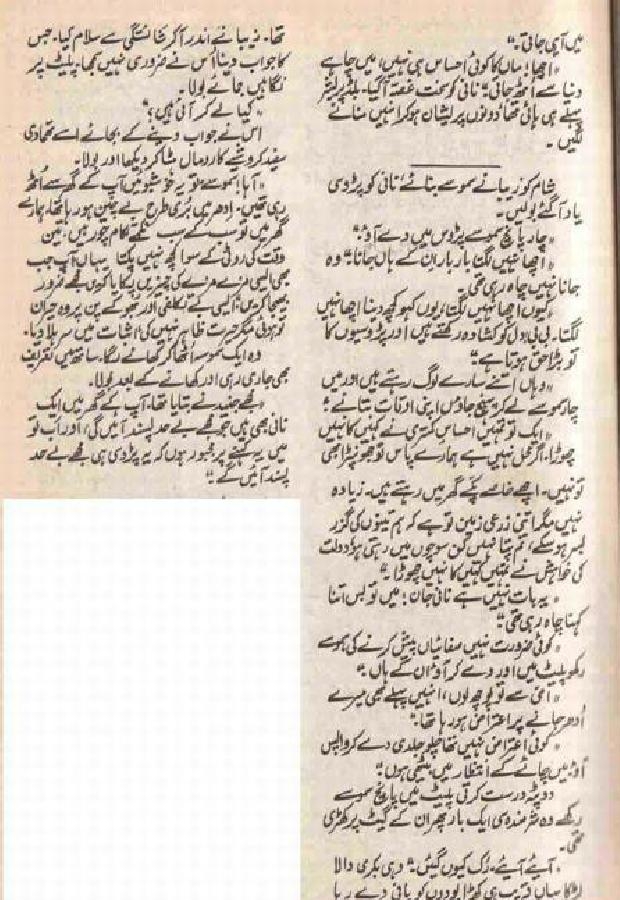 میں آہی جاتی۔"
"اچھا! ماں کا کوئی احساس ہی نہیں، میں چاہے
دنیا سے اٹھ جاتی۔" نانی کو سخت غصہ آگیا۔ بلڈ پریشر
پہلے ہی ہائی تھا دونوں پریشان ہو کر انہیں منانے
لگیں۔
شام کو زیبا نے سموسے بنائے، نانی کو پڑوسی
یاد آگئے بولیں۔
"چار پانچ سموسے پڑوس میں دے آؤ۔"
"اچھا نہیں لگتا بار بار ان کے ہاں جانا۔" وہ
جانا نہیں چاہ رہی تھی۔
"کیوں اچھا نہیں لگتا، یوں کہو کچھ دینا اچھا نہیں
لگتا۔ بی بی دل کو کشادہ رکھتے ہیں اور پڑوسیوں کا
تو بڑا حق ہوتا ہے۔"
"وہاں اتنے سارے لوگ رہتے ہیں اور میں
چار سموسے لے کر پہنچ جاؤں اپنی اوقات بتانے۔"
"ایک تو تمہیں احساس کمتری نے کہیں کا نہیں
چھوڑا۔ اگر محل نہیں ہے ہمارے پاس تو جھونپڑا بھی
تو نہیں۔ اچھے خاصے پکے گھر میں رہتے ہیں۔ زیادہ
نہیں مگر اتنی زرعی زمین تو ہے کہ ہم تینوں کی گزر
بسر ہو سکے، تم پتا نہیں کن سوچوں میں رہتی ہو، دولت
کی خواہش نے تمہیں کہیں کا نہیں چھوڑا۔"
"یہ بات نہیں ہے نانی جان! میں تو بس اتنا
کہنا چاہ رہی تھی۔"
"کوئی ضرورت نہیں صفائیاں پیش کرنے کی سموسے
رکھو پلیٹ میں اور دے کر آؤ ان کے ہاں۔"
"امی سے تو پوچھ لوں، انہیں پہلے بھی میرے
ادھر جانے پر اعتراض ہو رہا تھا۔"
"کوئی اعتراض نہیں تھا چلو جلدی دے کر واپس
آؤ، میں چائے کے انتظار میں بیٹھی ہوں۔"
دوپٹہ درست کرتی پلیٹ میں پانچ سموسے
رکھے وہ شرمندہ سی ایک بار پھر ان کے گیٹ پر کھڑی
تھی۔
"آیئے آیئے، رک کیوں گئیں۔" وہی بکری والا
لڑکا یہاں قریب ہی کھڑا پودوں کو پانی دے رہا
تھا۔ زیبا نے اندر آکر شائستگی سے سلام کیا۔ جس
کا جواب دینا اس نے ضروری نہیں سمجھا۔ پلیٹ پر
نگاہیں جمائے بولا۔
"کیا لے کر آئی ہیں؟"
اس نے جواب دینے کے بجائے اسے تھما دی
سفید کروشیے کا رومال ہٹا کر دیکھا اور بولا۔
"آہا! سموسے تو یہ خوشبوئیں آپ کے گھر سے اٹھ
رہی تھیں۔ ادھر میں بری طرح بے چین ہو رہا تھا۔ ہمارے
گھر میں تو سب کے سب نکمے کام چور ہیں، تین
وقت کی روٹی کے سوا کچھ نہیں پکتا یہاں آپ جب
بھی ایسی مزے مزے کی چیزیں پکایا کریں مجھے ضرور
بھیجا کریں۔" ایسی بے تکلفی اور ندیدے پن پر وہ حیران
تو ہوئی مگر حیرت ظاہر نہیں کی اثبات میں سر ہلا دیا۔
وہ ایک سموسہ اٹھا کر کھانے لگا۔ ساتھ میں تعریف
بھی جاری رہی اور کھانے کے بعد بولا۔
"مجھے جنید نے بتایا تھا۔ آپ کے گھر میں ایک
نانی بھی ہیں جو مجھے بے حد پسند آئیں گی، اور اب تو
میں یہ کہنے پر مجبور ہوں کہ یہ پڑوسی ہی مجھے بے حد
پسند آئیں گے۔"